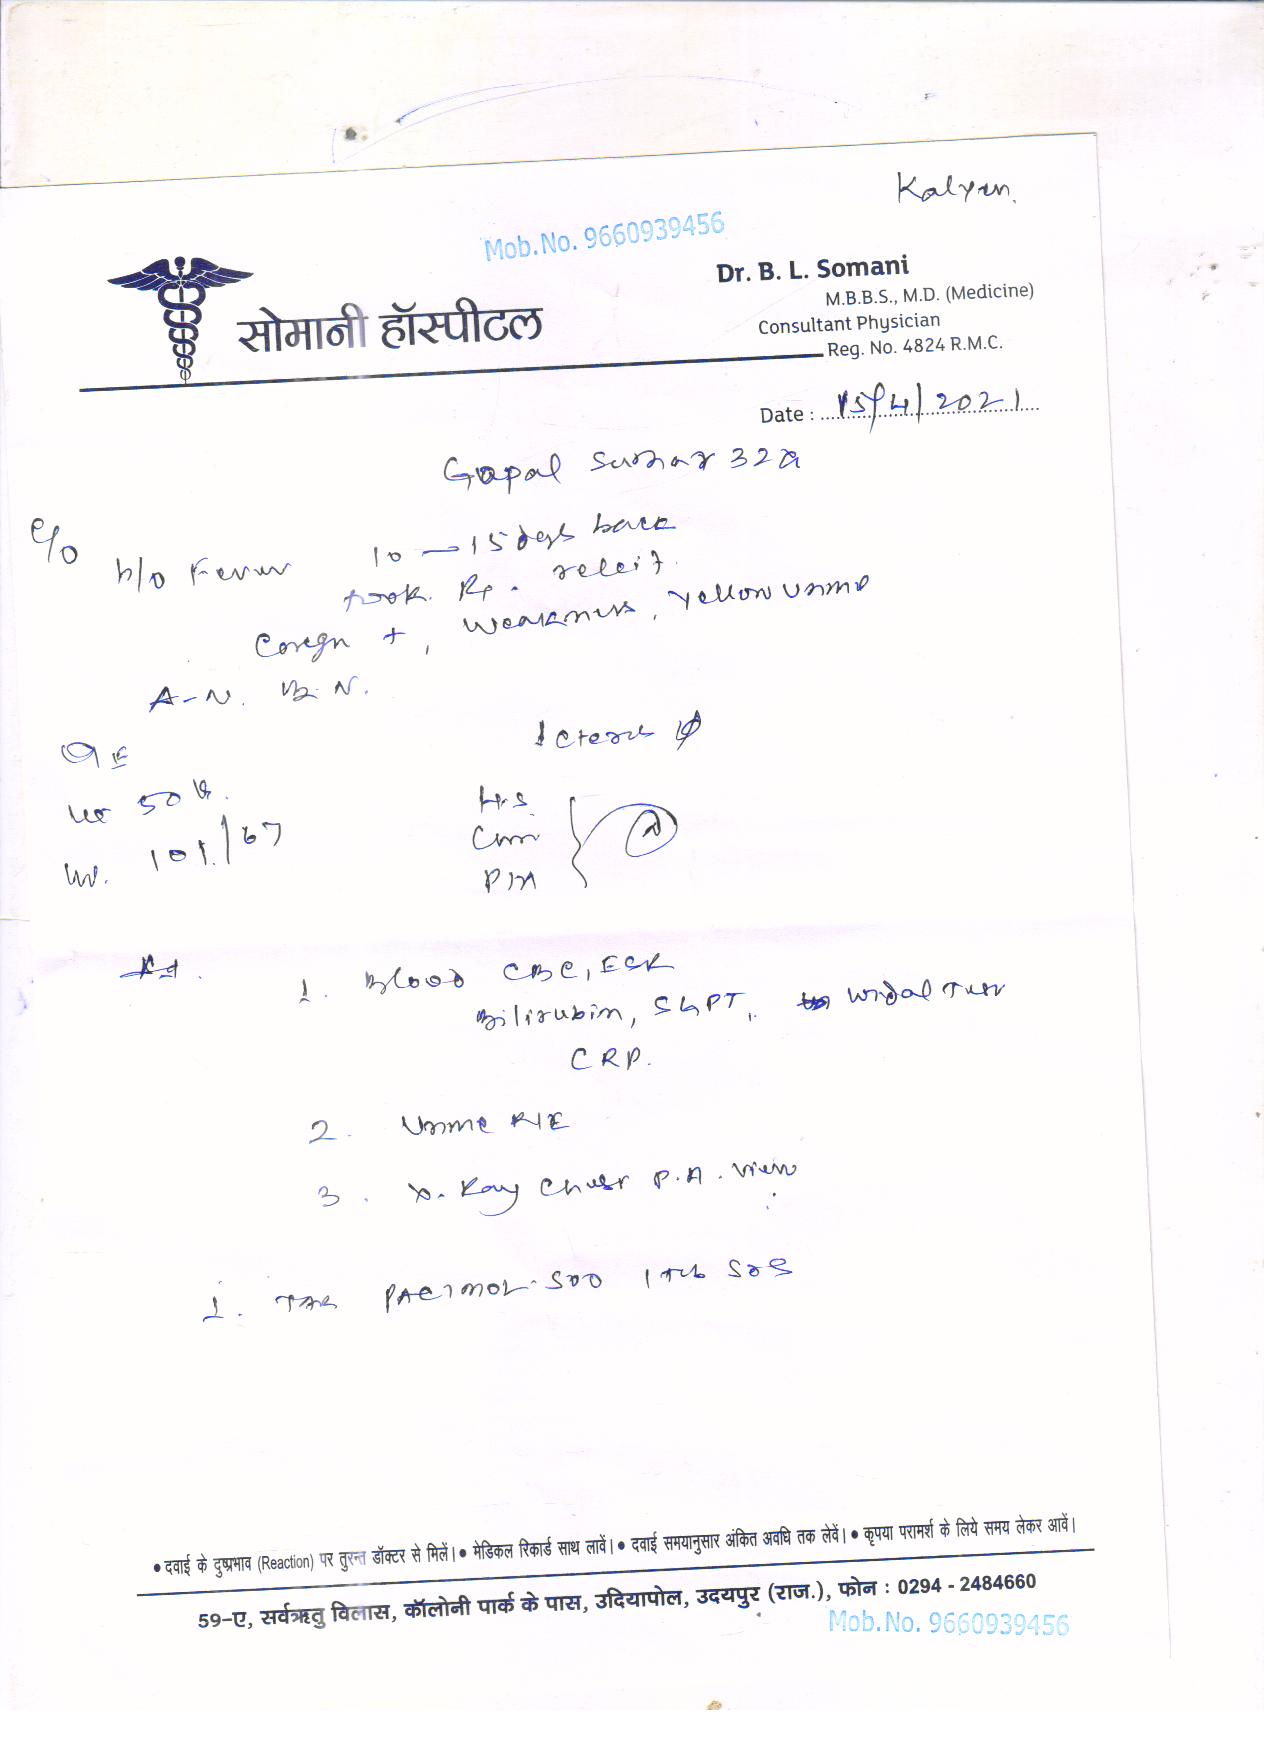 Kalyan.
Mob.No. 9660939456
Dr. B. L. Somani
M.B.B.S., M.D. (Medicine)
सोमानी हॉस्पीटल
Consultant Physician
Reg. No. 4824 R.M.C.
Date : 15/4/2021
Gopal 32
C/o
h/o Fever 10 — 15 days back
took Rx. relief.
+, Weakness, Yellow Urine
A-N. B.N.
O/E
Icterus
50
101/67
H.S
P/A
1. Blood CBC, ESR
Bilirubin, SGPT, Widal Test
CRP.
2. Urine R/E
3. X-Ray Chest P.A. View
1. TAB PACIMOL-500 1 Tab SOS
• दवाई के दुष्प्रभाव (Reaction) पर तुरन्त डॉक्टर से मिलें। • मेडिकल रिकार्ड साथ लावें। • दवाई समयानुसार अंकित अवधि तक लेवें। • कृपया परामर्श के लिये समय लेकर आवें।
59-ए, सर्वऋतु विलास, कॉलोनी पार्क के पास, उदियापोल, उदयपुर (राज.), फोन : 0294 - 2484660
Mob.No. 9660939456